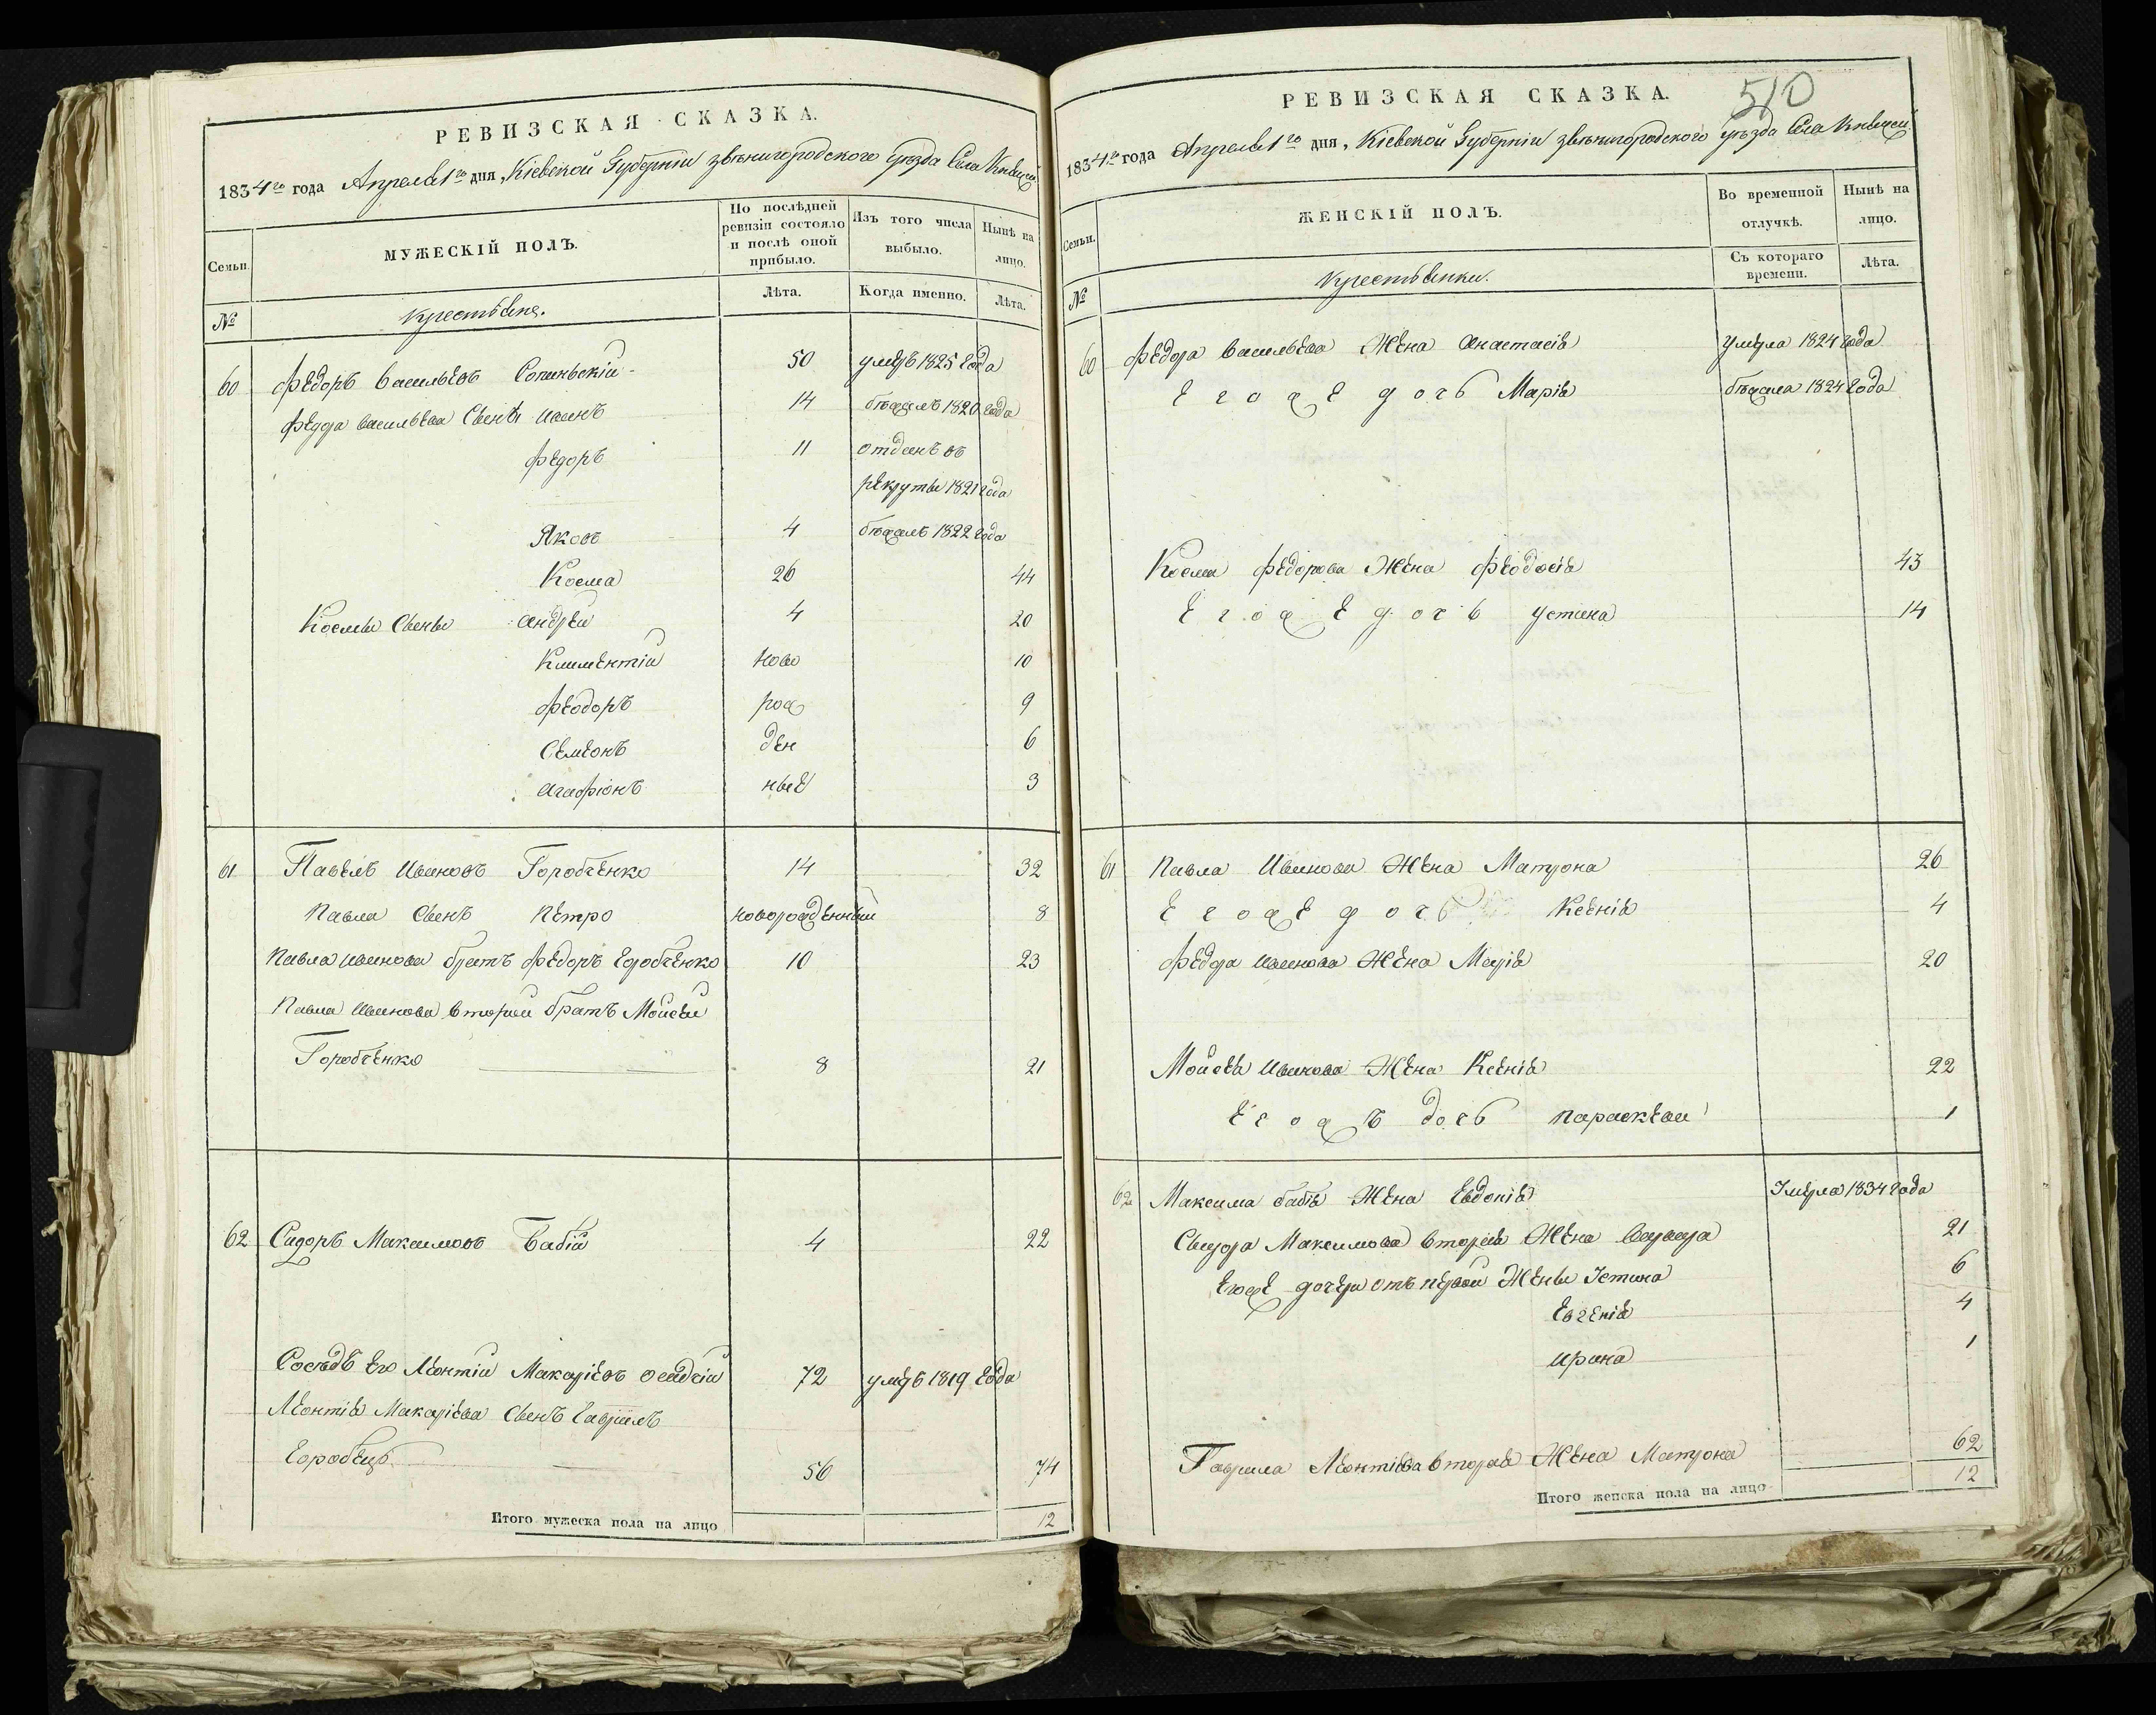 РЕВИЗСКАЯ СКАЗКА.
1834го года Апреля 1го дня, Кіевской Губерніи звѣнигородского уѣзда Села
Семьи.
МУЖЕСКІЙ ПОЛЪ.
По послѣдней ревизіи состояло и послѣ оной прибыло.
Изъ того числа выбыло.
Нынѣ на лицо.
№
крестьяне.
Лѣта.
Когда именно.
Лѣта.
60 Федоръ васильевъ 50 умеръ 1825 года
Федора васильева Сынъ иванъ 14 бѣжалъ 1820 года
федоръ 11 отданъ въ
рекруты 1821 года
Яковъ 4 бѣжалъ 1822 года
Косма 26 44
Космы Сыны андрей 4 20
Климентій ново 10
феодоръ рож 9
Семіонъ ден 6
агафіонъ ные 3
61 Павелъ Ивановъ Горобченко 14 32
Павла Сынъ Петро новорожденный 8
Павла иванова братъ федоръ Горобченко 10 23
Павла иванова вторый братъ Мойсей
Горобченко 8 21
62 Сидоръ Максимовъ Бабій 4 22
Сосѣдъ его Леонтій Макаріевъ осадчій 72 умеръ 1819 года
Леонтія Макаріева Сынъ гавріилъ
Горобецъ 56 74
Итого мужеска пола на лицо 12
510
РЕВИЗСКАЯ СКАЗКА.
1834го года Апреля 1го дня, Кіевской Губерніи звѣнигородского уѣзда Села
Семьи.
ЖЕНСКІЙ ПОЛЪ.
Во временной отлучкѣ.
Нынѣ на лицо.
№
крестьянки.
Съ котораго времени.
Лѣта.
60 Федора васильева Жена анастасія умерла 1824 года
Его же дочь Марія бѣжала 1824 года
Космы федорова Жена феодосія 43
Его же дочь устина 14
61 Павла Иванова Жена Матрона 26
Его же дочь Ксенія 4
федора иванова Жена Марія 20
Мойсея иванова Жена Ксенія 22
Его жъ дочь параскева 1
62 Максима бабія Жена Евдокія Умерла 1834 года
Сыдора Максимова вторая Жена варвара 21
Его же дочери отъ первой Жены Устина 6
Евгенія 4
ирина 1
Гаврила Леонтіева вторая Жена Матрона 62
Итого женска пола на лицо 12